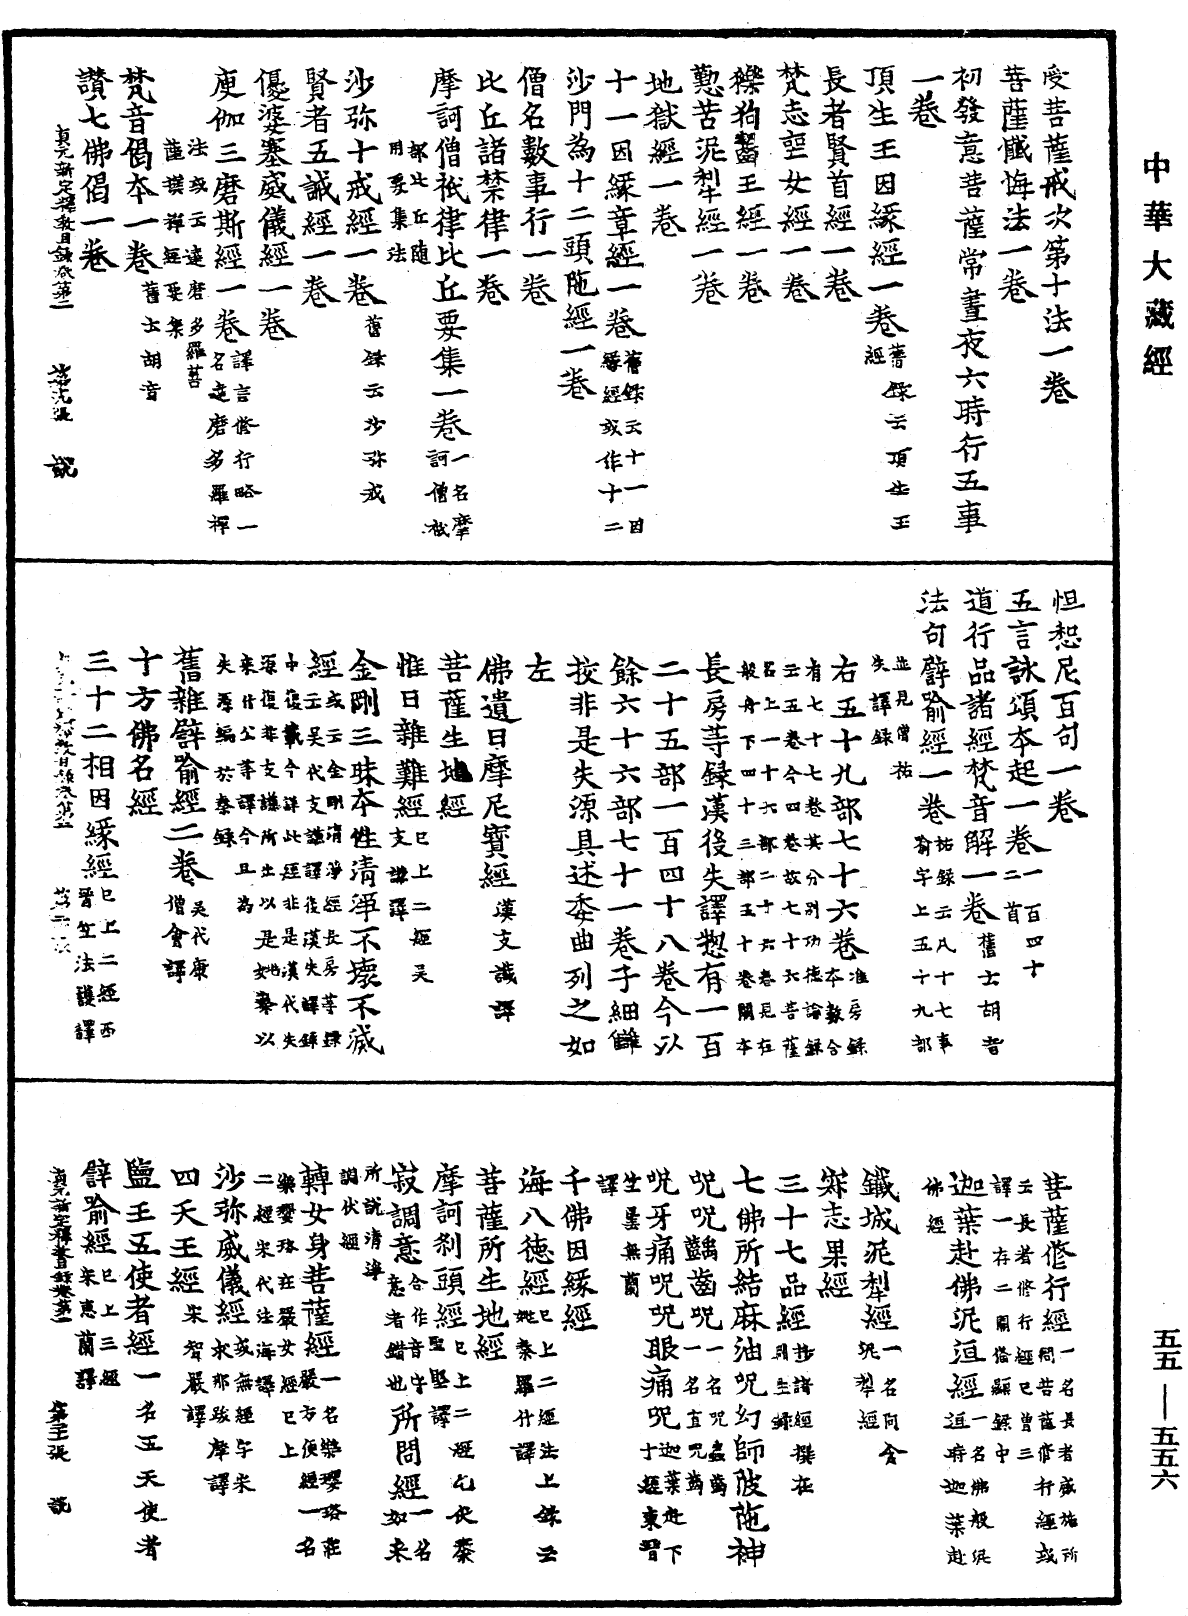 中華大藏經
受菩薩戒次第十法一卷
菩薩懺悔法一卷
初發意菩薩常晝夜六時行五事
一卷
頂生王因緣經一卷舊錄云頂生王經
長者賢首經一卷
梵志堊女經一卷
襍狗齧王經一卷
懃苦泥犁經一卷
地獄經一卷
十一因緣章經一卷舊錄云十一因緣經或作十二
沙門為十二頭陁經一卷
僧名數事行一卷
比丘諸禁律一卷
摩訶僧祇律比丘要集一卷一名摩訶僧祇
部比丘隨用要集法
沙弥十戒經一卷舊錄云沙弥戒
賢者五誡經一卷
優婆塞威儀經一卷
庾伽三磨斯經一卷譯言修行略一名達磨多羅禪
法或云達磨多羅菩薩撰禪經要集
梵音偈本一卷舊士胡音
讚七佛偈一卷
貞元新定釋教目錄卷第二 張 說
怛惒尼百句一卷
五言詠頌本起一卷一百四十二首
道行品諸經梵音解一卷舊士胡音
法句譬喻經一卷祐錄云凡十七事喻字上五十九部
並見僧祐失譯錄
右五十九部七十六卷准房錄本數合
有七十七卷其分別功德論錄云五卷今四卷故七十六菩薩
名上一十六部二十六卷見在般舟下四十三部五十卷闕本
長房等録漢後失譯惣有一百
二十五部一百四十八卷今以
餘六十六部七十一卷子細讎
挍非是失源具述委曲列之如
左
佛遺日摩尼寶經漢支讖譯
菩薩生地經
惟日雜難經已上二經吳支謙譯
金剛三昧本性清淨不壞不滅
經或云金剛清淨經長房等錄云吳代支謙譯後漢失譯錄
中復載今詳此經非是漢代失源復非支謙所出以是姚秦以
來什公等譯今且為失源編於秦錄
舊雜譬喻經二卷吳代康僧會譯
十方佛名經
三十二相因緣經已上二經西晉竺法護譯
菩薩修行經一名長者威施所問菩薩修行經或
云長者修行經已曾三譯一存二闕俗顯錄中
迦葉赴佛泥洹經一名佛般泥洹時迦葉赴
佛經
鐵城泥犁經一名阿含泥犁經
㝛志果經
三十七品經抄諸經撰在別生錄
七佛所結麻油呪幻師陂陁神
呪呪齲齒呪一名呪蟲齒一名直呪齒
呪牙痛呪呪眼痛呪迦葉赴下十經東晉
竺曇無蘭譯
千佛因緣經
海八德經已上二經法上錄云姚秦羅什譯
菩薩所生地經
摩訶剎頭經已上二經乞伏秦聖堅譯
寂調意合作音字意者錯也所問經一名如來
所說清淨調伏經
轉女身菩薩經一名樂瓔珞莊嚴方便經一名
樂瓔珞莊嚴女經已上二經宋代法海譯
沙弥威儀經或無經字宋求那跋摩譯
四天王經宋智嚴譯
鹽王五使者經一名五天使者
譬喻經已上三經宋惠簡譯
五五—五五六